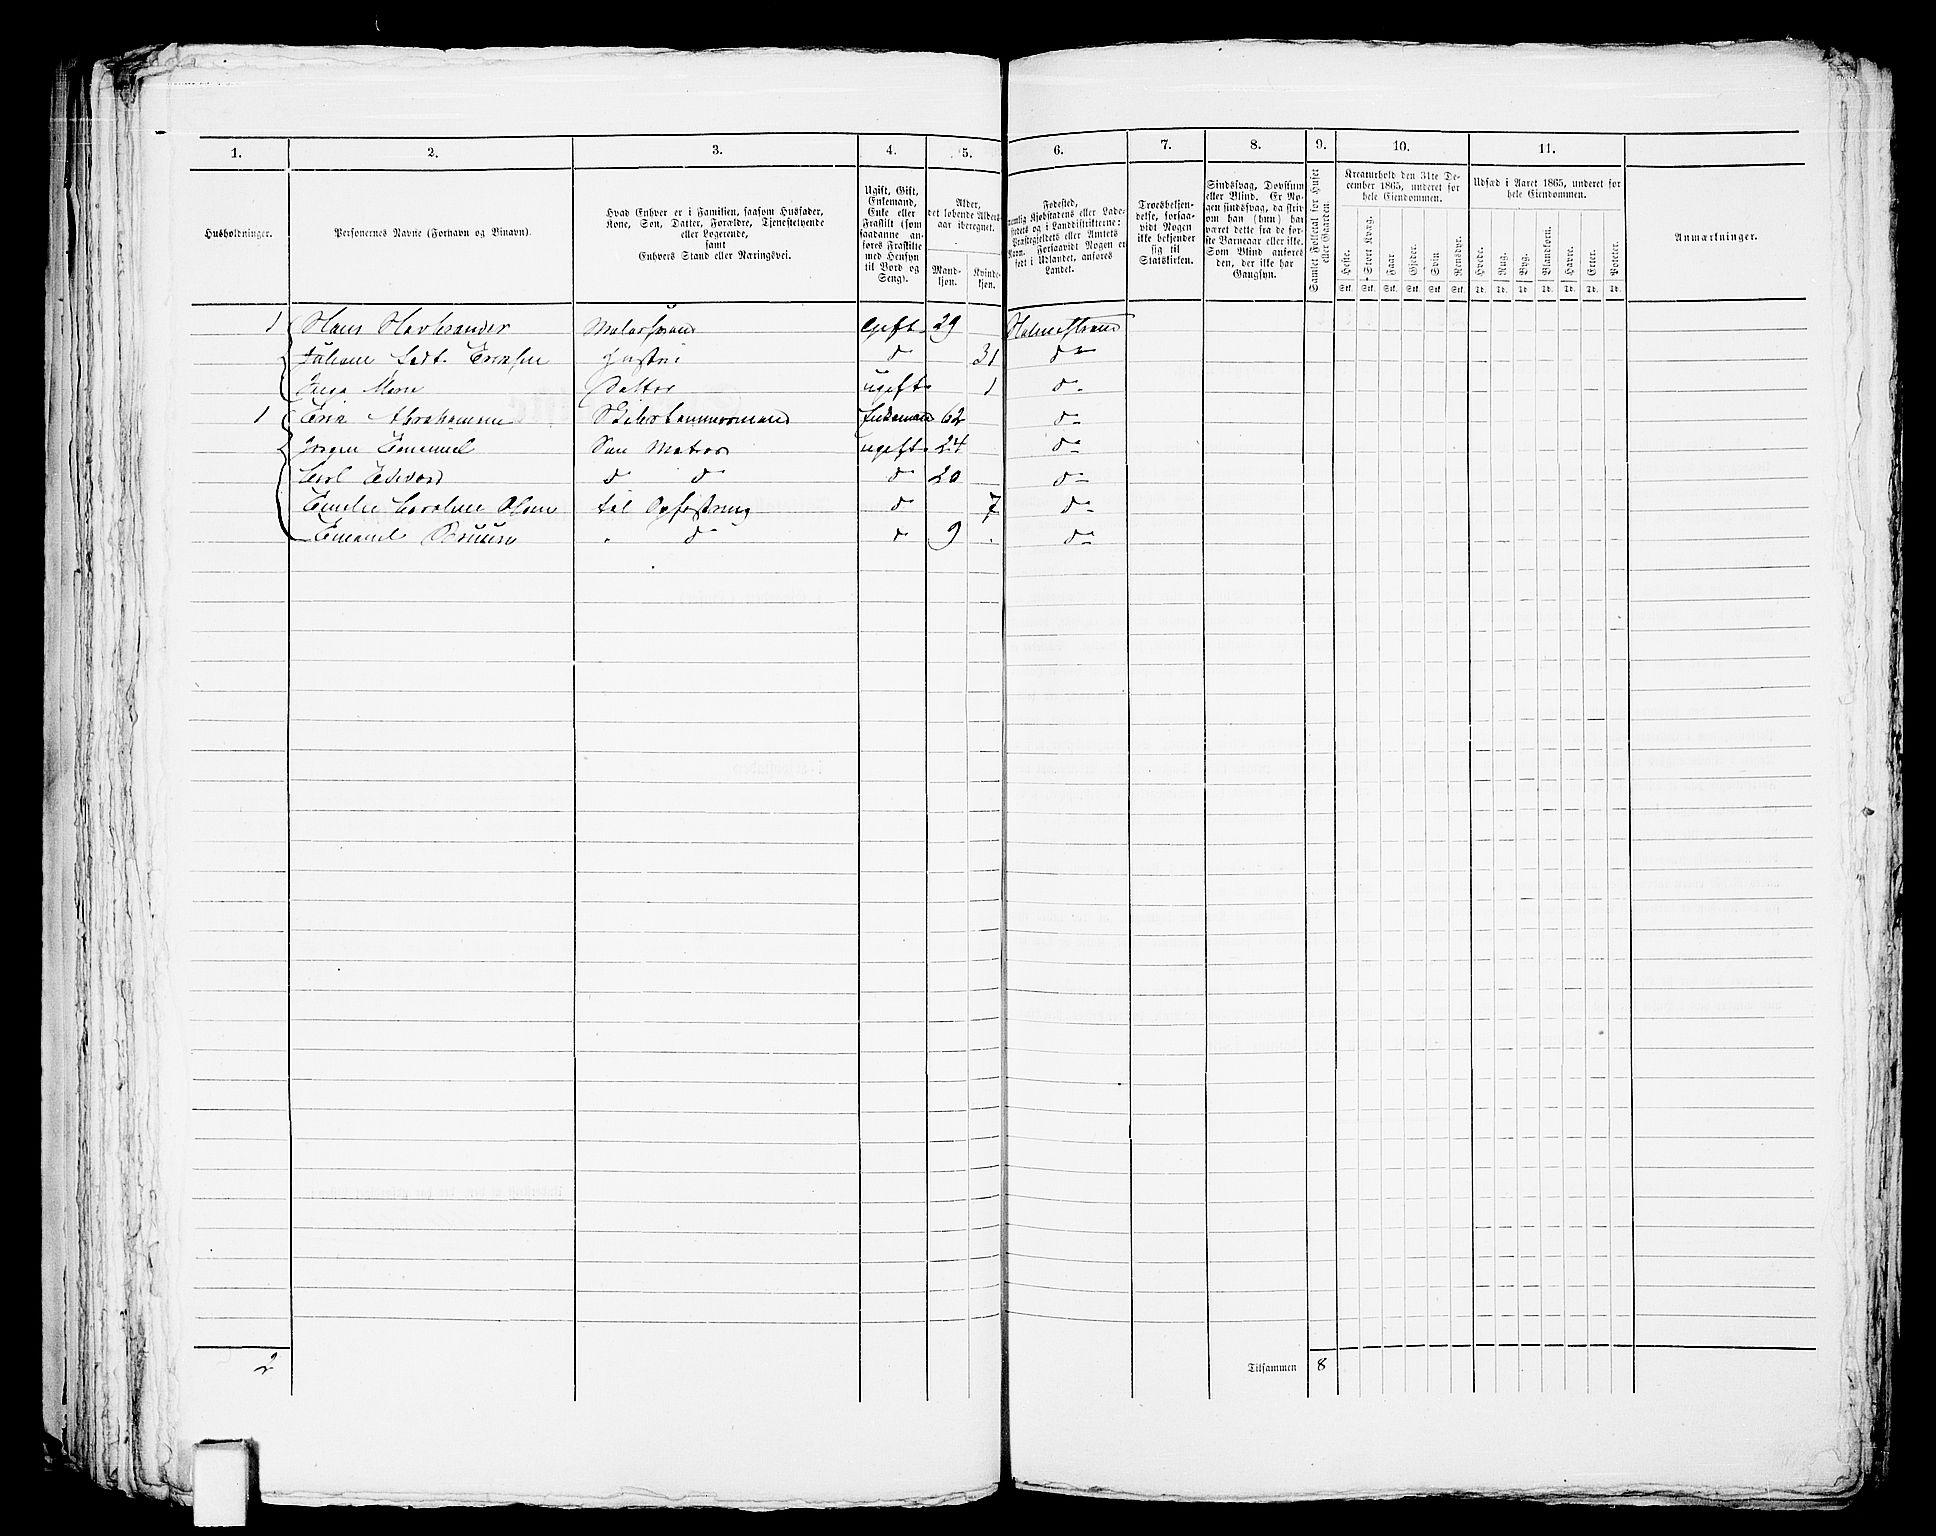 1. 2. 3. 4. 5. 6. 7. 8. 9. 10. 11.
Husholdninger.
Personernes Navne (Fornavn og Binavn).
Hvad Enhver er i Familien, saasom Husfader,
Kone, Søn, Datter, Forældre, Tjenestetyende
eller Logerende,
samt
Enhvers Stand eller Næringsvei.
Ugift, Gift,
Enkemand,
Enke eller
Fraskilt (som
saadanne an-
føres Fraskilte
med Hensyn
til Bord og
Seng).
Alder,
det løbende Alders-
aar iberegnet.
Mand-
kjøn.
Kvinde-
kjøn.
Fødested,
nemlig Kjøbstadens eller Lade-
stedets og i Landdistrikterne:
Præstegjeldets eller Amtets
Navn. Forsaavidt Nogen er
født i Udlandet, anføres
Landet.
Troesbekjen-
delse, forsaa-
vidt Nogen
ikke bekjender
sig til
Statskirken.
Sindssvag, Døvstum
eller Blind. Er No-
gen sindssvag, da skriv
om han (hun) har
været dette fra de før-
ste Barneaar eller ikke.
Som Blind anføres
den, der ikke har
Gangsyn.
Samlet Folketal for Huset
eller Gaarden.
Kreaturhold den 31te De-
cember 1865, underet for
hele Eiendommen.
Heste. Stort Kvæg. Faar. Gjeder. Svin. Rensdyr.
Stk. Stk. Stk. Stk. Stk. Stk.
Udsæd i Aaret 1865, underet for
hele Eiendommen.
Hvede. Rug. Byg. Blandkorn. Havre. Erter. Poteter.
Td. Td. Td. Td. Td. Td. Td.
Anmærkninger.
1 Hans Gift 29 Holmestrand
Eriksen d 31 d
Marie Datter ugift 1 d
1 Erik Abrahamsen Enkemand 62 d
Jørgen Emanuel Søn Matros ugift 24 d
Carl Edvard d d d 20 d
Emilie Caroline Olsen til Opfostring d 7 d
Emanuel d d 9 d
2 Tilsammen 8